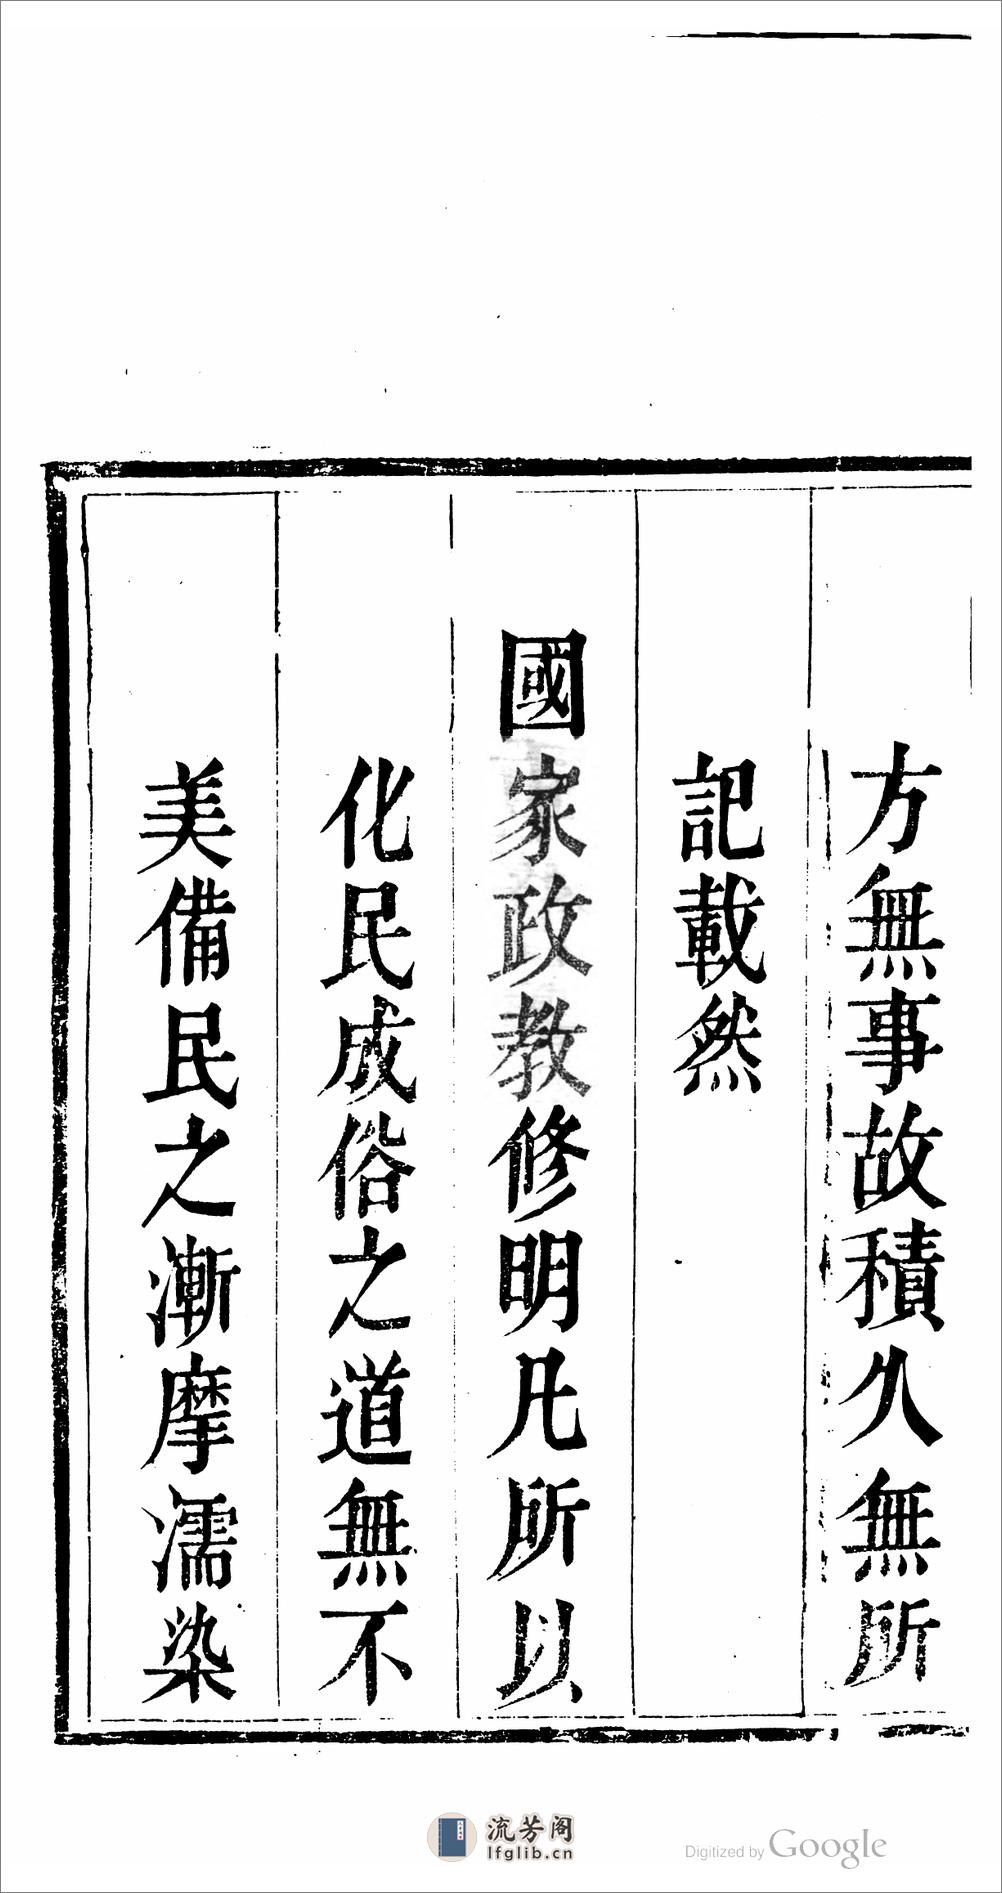 方無事故積久無所
記載然
國家政教修明凡所以
化民成俗之道無不
美備民之漸摩濡染
流芳阁
lfglib.cn
Digitized by Google